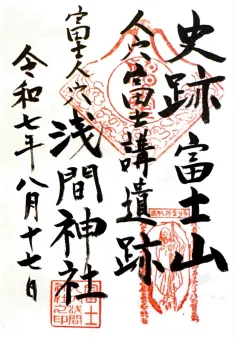 史跡富士山
人穴富士講遺跡
富士人穴
浅間神社
令和七年八月十七日
富士
浅間